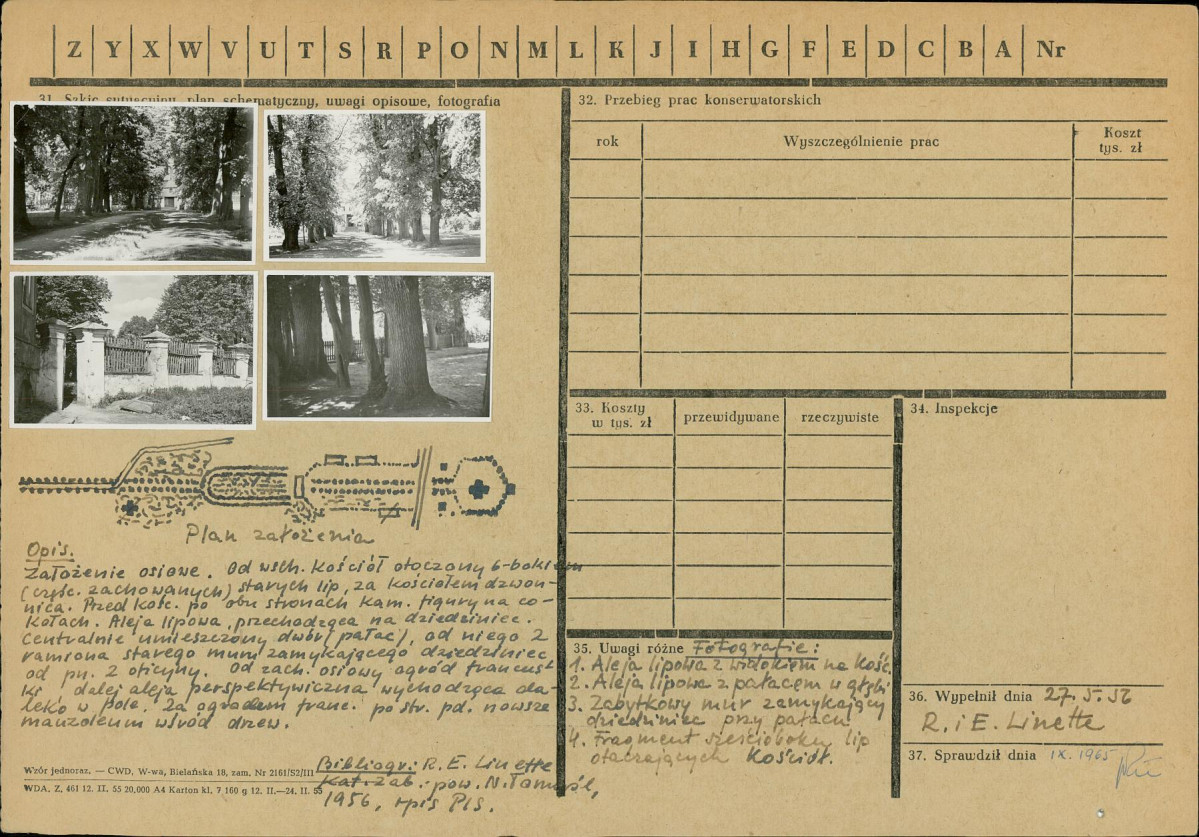 Z Y X W V U T S R P O N M L K J I H G F E D C B A Nr
31. Szkic sytuacyjny, plan schematyczny, uwagi opisowe, fotografia
Plan założenia
Opis.
Założenie osiowe. Od wsch. Kościół otoczony 6-bokiem
(częśc. zachowanych) starych lip, za kościołem dzwon-
nica. Przed kośc. po obu stronach kam. figury na co-
kołach. Aleja lipowa, przechodząca na dziedziniec.
Centralnie umieszczony dwór (pałac), od niego 2
ramiona starego muru zamykającego dziedziniec
od pn. 2 oficyny. Od zach. osiowy ogród francus-
ki dalej aleja perspektywiczna wychodząca da-
leko w pole. Za ogrodem franc. po str. pd. nowsze
mauzoleum wśród drzew.
Bibliogr: R. E. Linette
Kat. zab. pow. N. Tomyśl,
1956, rpis PIS.
Wzór jednoraz. — CWD, W-wa, Bielańska 18, zam. Nr 2161/S2/III
WDA. Z. 461 12. II. 55 20,000 A4 Karton kl. 7 160 g 12. II.—24. II. 55
32. Przebieg prac konserwatorskich
rok Wyszczególnienie prac Koszt
tys. zł
33. Koszty
w tys. zł
przewidywane rzeczywiste
34. Inspekcje
35. Uwagi różne Fotografie:
1. Aleja lipowa z widokiem na Kość.
2. Aleja lipowa z pałacem w głębi
3. Zabytkowy mur zamykający
dziedziniec przy pałacu
4. Fragment sześcioboku lip
otaczających Kościół.
36. Wypełnił dnia 27.5.56
R. i E. Linette
37. Sprawdził dnia IX. 1965